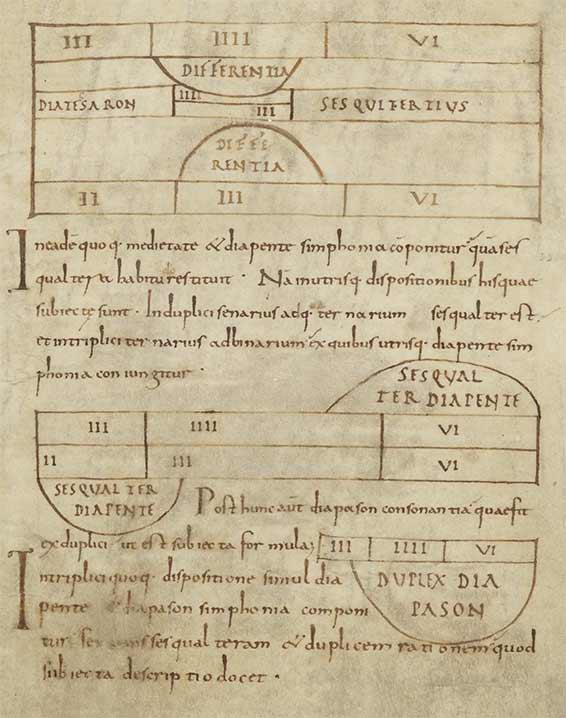 III IIII VI
DIFFERENTIA
DIATESARON IIII III SESQUITERTIUS
DIFFE
RENTIA
II III VI
In eadē quoq· medietate & diapente simphonia cōponitur quā ses
qual tera habitu restituit · Nā in utrisq· dispositionibus his quae
subiectę sunt · In duplici senarius adq· ter narium sesqual ter est·
et in triplici ter narius ad binarium ex quibus utrisq· diapente sim
phonia con iungitur ·
SESQUAL
TER DIAPENTE
III IIII VI
II III VI
SESQUAL TER
DIAPENTE
Post hunc aūt diapason consonantia quae fit
ex duplici ut est subiecta formula;
III IIII VI
DUPLEX DIA
PASON
In triplici quoq· dispositione simul dia
pente & diapason simphonia componi
tur sesqual teram & duplicem rationem quod
subiecta descriptio docet ·